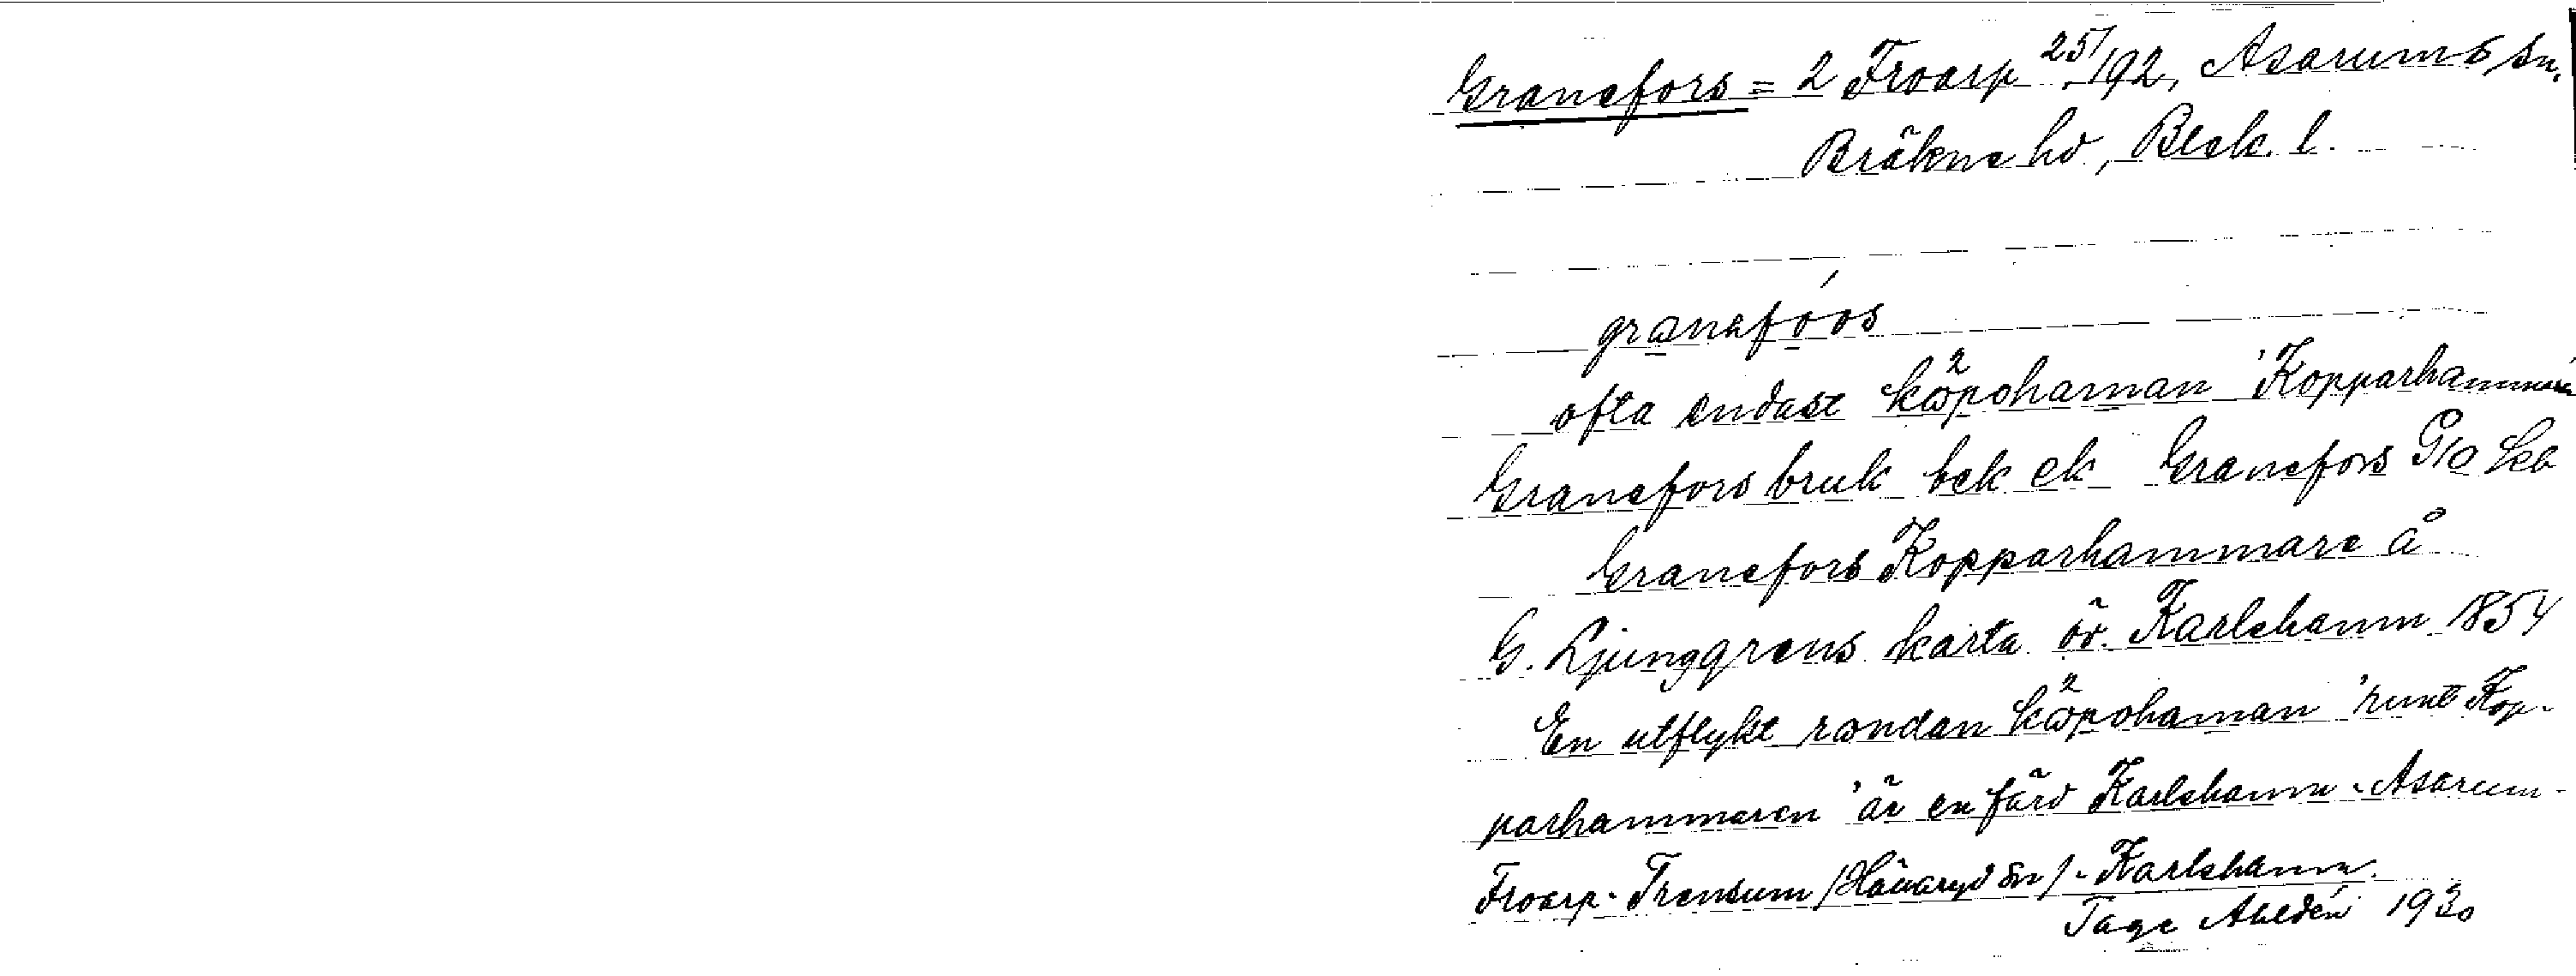 Granefors = 2 Froarp 25/192, Asarums sn.
Bräkne hd, Blek. l.
granefóos
ofta endast köpohaman 'Kopparhammaren'
Granefors bruk bek ek Granefors G10
Granefors Kopparhammare å
G. Ljunggrens karta öv. Karlshamn 1854
En utflykt rondan köpohaman 'runt Kop-
parhammaren' är en färd Karlshamn - Asarum -
Froarp - Trensum /Hällaryd sn/ - Karlshamn.
Tage Ahldén 1930